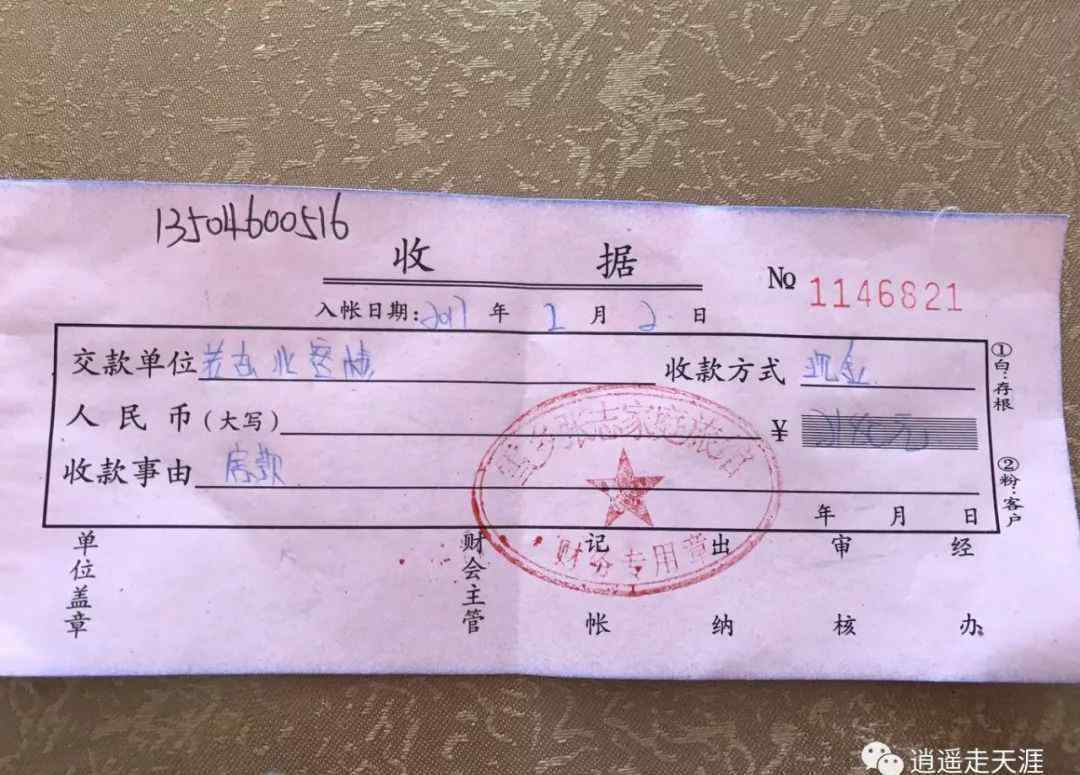 13504600516
收据
No 1146821
入帐日期:2017年2月2日
交款单位 收款方式 现金
人民币(大写) ¥ 3180元
收款事由 房款
年月日
①白:存根
②粉:客户
雪乡张志家庭旅馆
财务专用章
单位盖章 财会主管 记帐 出纳 审核 经办
逍遥走天涯